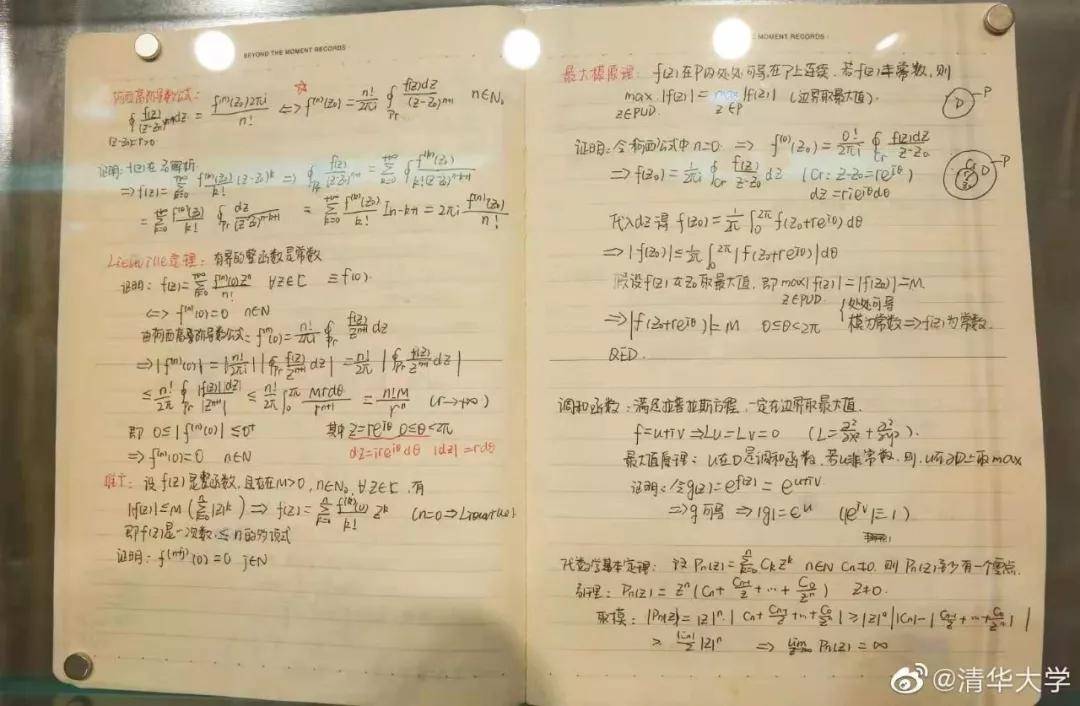 BEYOND THE MOMENT RECORDS
柯西高阶导数公式:
∮ f(z)/(z-z₀)ⁿ⁺¹ dz = f⁽ⁿ⁾(z₀)2πi / n! ⟺ f⁽ⁿ⁾(z₀) = n!/2πi ∮_Pr f(z)dz/(z-z₀)ⁿ⁺¹ n∈N₀
|z-z₀|=r>0
证明: f(z)在z₀解析
⇒ f(z) = Σ_{k=0}^{+∞} f⁽ᵏ⁾(z₀)/k! (z-z₀)ᵏ ⇒ ∮_Pr f(z)/(z-z₀)ⁿ⁺¹ = Σ_{k=0}^{+∞} ∮ f⁽ᵏ⁾(z₀)/k!(z-z₀)ⁿ⁻ᵏ⁺¹
= Σ_{k=0}^{+∞} f⁽ᵏ⁾(z₀)/k! ∮_Pr dz/(z-z₀)ⁿ⁻ᵏ⁺¹ = Σ_{k=0}^{+∞} f⁽ᵏ⁾(z₀)/k! I_{n-k+1} = 2πi f⁽ⁿ⁾(z₀)/n!
Liouville定理: 有界的整函数是常数
证明: f(z) = Σ_{n=0}^{+∞} f⁽ⁿ⁾(0)zⁿ/n! ∀z∈C ≡ f(0)
⟺ f⁽ⁿ⁾(0)=0 n∈N
由柯西高阶导数公式: f⁽ⁿ⁾(0) = n!/2πi ∮_Pr f(z)/zⁿ⁺¹ dz
⇒ |f⁽ⁿ⁾(0)| = |n!/2πi| |∮_Pr f(z)/zⁿ⁺¹ dz| = n!/2π |∮_Pr f(z)/zⁿ⁺¹ dz|
≤ n!/2π ∮_Pr |f(z)||dz|/|zⁿ⁺¹| ≤ n!/2π ∫₀^{2π} Mrdθ/rⁿ⁺¹ = n!M/rⁿ (r→+∞)
即 0≤|f⁽ⁿ⁾(0)|≤0⁺ 其中 z=re^{iθ} 0≤θ<2π
⇒ f⁽ⁿ⁾(0)=0 n∈N dz=ire^{iθ}dθ |dz|=rdθ
推广: 设 f(z)是整函数, 且存在M>0, n∈N₀, ∀z∈C, 有
|f(z)|≤M(Σ_{k=0}^{n} |z|ᵏ) ⇒ f(z) = Σ_{k=0}^{n} f⁽ᵏ⁾(0)/k! zᵏ (n=0⇒Liouville)
即f(z)是一次数≤n的多项式
证明: f⁽ⁿ⁺ʲ⁾(0)=0 j∈N
MOMENT RECORDS
最大模原理: f(z)在P内处处可导,在P上连续. 若f(z)非常数, 则
max_{z∈P∪D} |f(z)| = max_{z∈P} |f(z)| (边界取最大值).
D P
证明: 令柯西公式中n=0 ⇒ f⁽⁰⁾(z₀) = 0!/2πi ∮_Cr f(z)dz/z-z₀
⇒ f(z₀) = 1/2πi ∮_Cr f(z)/z-z₀ dz (Cr: z-z₀=re^{iθ})
dz=rie^{iθ}dθ
Cr z₀ D P
代入dz得 f(z₀) = 1/2π ∫₀^{2π} f(z₀+re^{iθ})dθ
⇒ |f(z₀)| ≤ 1/2π ∫₀^{2π} |f(z₀+re^{iθ})|dθ
假设f(z)在z₀取最大值, 即 max_{z∈P∪D}|f(z)| = |f(z₀)| = M
⇒ |f(z₀+re^{iθ})| = M 0≤θ<2π { 处处可导 模为常数 ⇒ f(z)为常数.
QED.
调和函数: 满足拉普拉斯方程, 一定在边界取最大值.
f=u+iv ⇒ Lu=Lv=0 (L=∂²/∂x²+∂²/∂y²).
最大值原理: u在D是调和函数, 若u非常数, 则, u在∂D上取max
证明: 令g(z)=e^{f(z)}=e^{u+iv}
⇒g可导 ⇒|g|=eᵘ (|e^{iv}|=1)
代数学基本定理: 设 Pn(z)=Σ_{k=0}^{n} Ckzᵏ n∈N Cn≠0. 则 Pn(z)至少有一个零点.
引理: Pn(z) = zⁿ(Cn+Cn-1/z+…+C₀/zⁿ) z≠0.
取模: |Pn(z)|=|z|ⁿ·|Cn+Cn-1/z+…+C₀/zⁿ| ≥|z|ⁿ||Cn|-|Cn-1/z+…+C₀/zⁿ||
≥ |Cn|/2 |z|ⁿ ⇒ lim_{z→∞} Pn(z)=∞
@清华大学